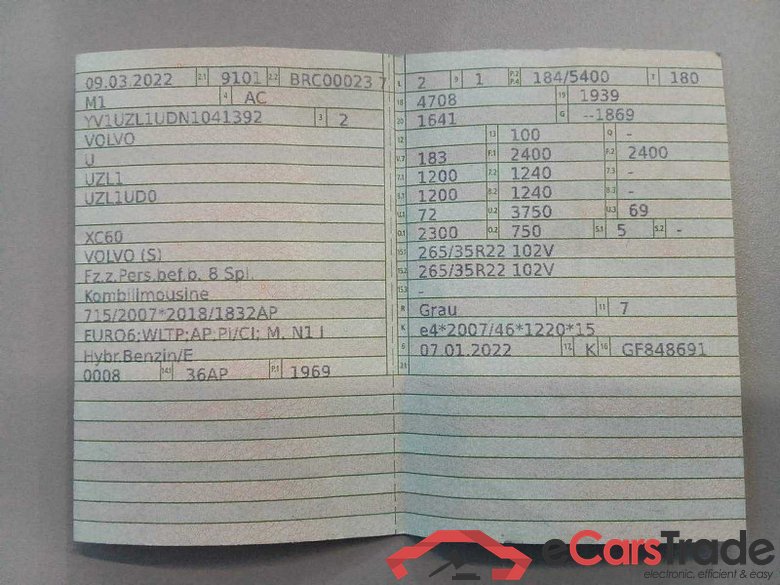 09.03.2022 2.1 9101 2.2 BRC00023 7
M1 4 AC
YV1UZL1UDN1041392 3 2
VOLVO
U
UZL1
UZL1UD0
XC60
VOLVO (S)
Fz.z.Pers.bef.b. 8 Spl.
Kombilimousine
715/2007*2018/1832AP
EURO6;WLTP;AP,PI/CI; M, N1 I
Hybr.Benzin/E
0008 14.1 36AP P.1 1969
L 2 9 1 P.2 P.4 184/5400 T 180
18 4708 19 1939
20 1641 G --1869
12 13 100 Q -
V.7 183 F.1 2400 F.2 2400
7.1 1200 7.2 1240 7.3 -
8.1 1200 8.2 1240 8.3 -
U.1 72 U.2 3750 U.3 69
O.1 2300 O.2 750 S.1 5 S.2 -
15.1 265/35R22 102V
15.2 265/35R22 102V
15.3 -
R Grau 11 7
K e4*2007/46*1220*15
6 07.01.2022 17 K 16 GF848691
21
eCarsTrade
electronic, efficient & easy